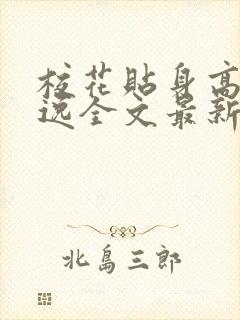 校花贴身高
逸全文最新
北島三郎